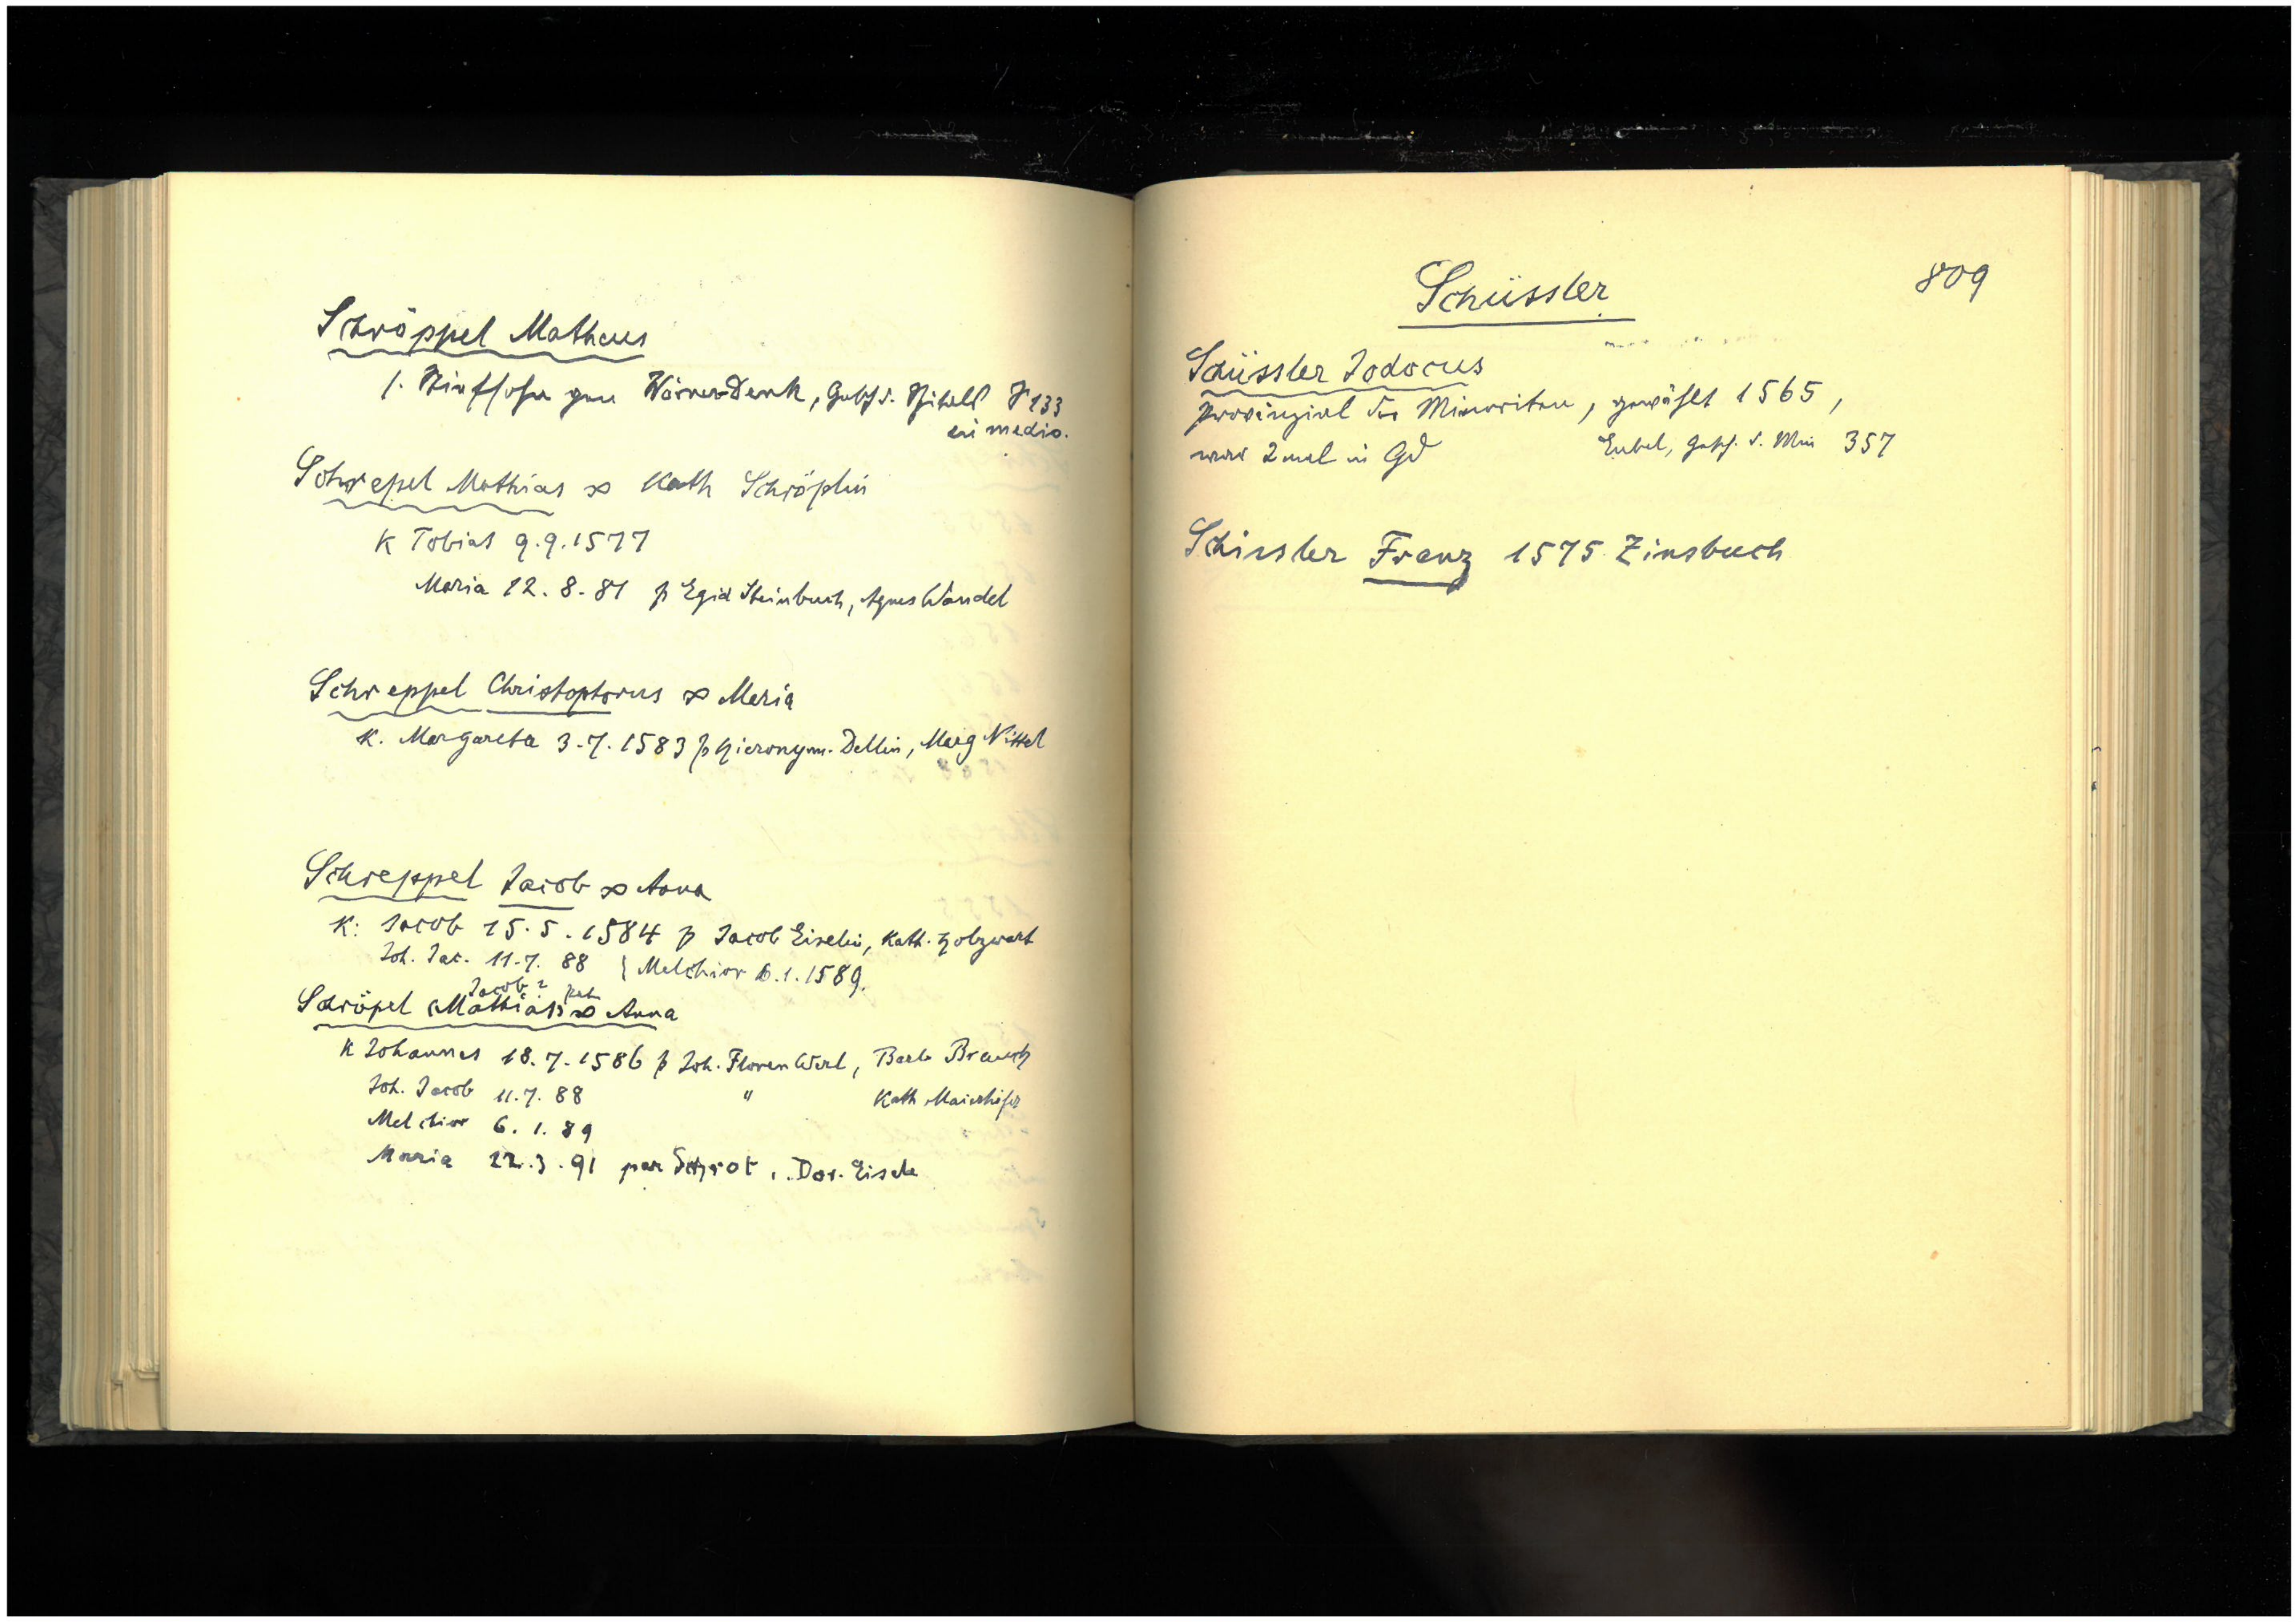 Schröppel Matheus
s. Stiefsohn gen Wörner Denk, Gesch. d. Spitals S 133
in medio.
Schrepel Mathias ∞ Kath Schröplin
K Tobias 9.9.1577
Maria 12.8.81 p Egid Steinbuch, Agnes Wandel
Schreppel Christophorus ∞ Maria
K. Margareta 3.7.1583 p Hieronym. Dellin, Marg Nittel
Schreppel Jacob ∞ Anna
K: Jacob 15.5.1584 p Jacob Eiselin, Kath. Holzwart
Joh. Jac. 11.7.88 { Melchior 6.1.1589.
Jacob?
Schröpel (Mathias) ∞ Anna
K Johannes 18.7.1586 p Joh. Floren Werl, Barb Brausch
Joh. Jacob 11.7.88 " Kath Maierhöfer
Melchior 6.1.89
Maria 22.3.91 Schrot, Dor. Eisele
Schüssler 809
Schüssler Jodocus
Provinzial der Minoriten, gewählt 1565,
war 2 mal in Gd Eubel, Gesch. d. Min 357
Schissler Franz 1575 Zinsbuch